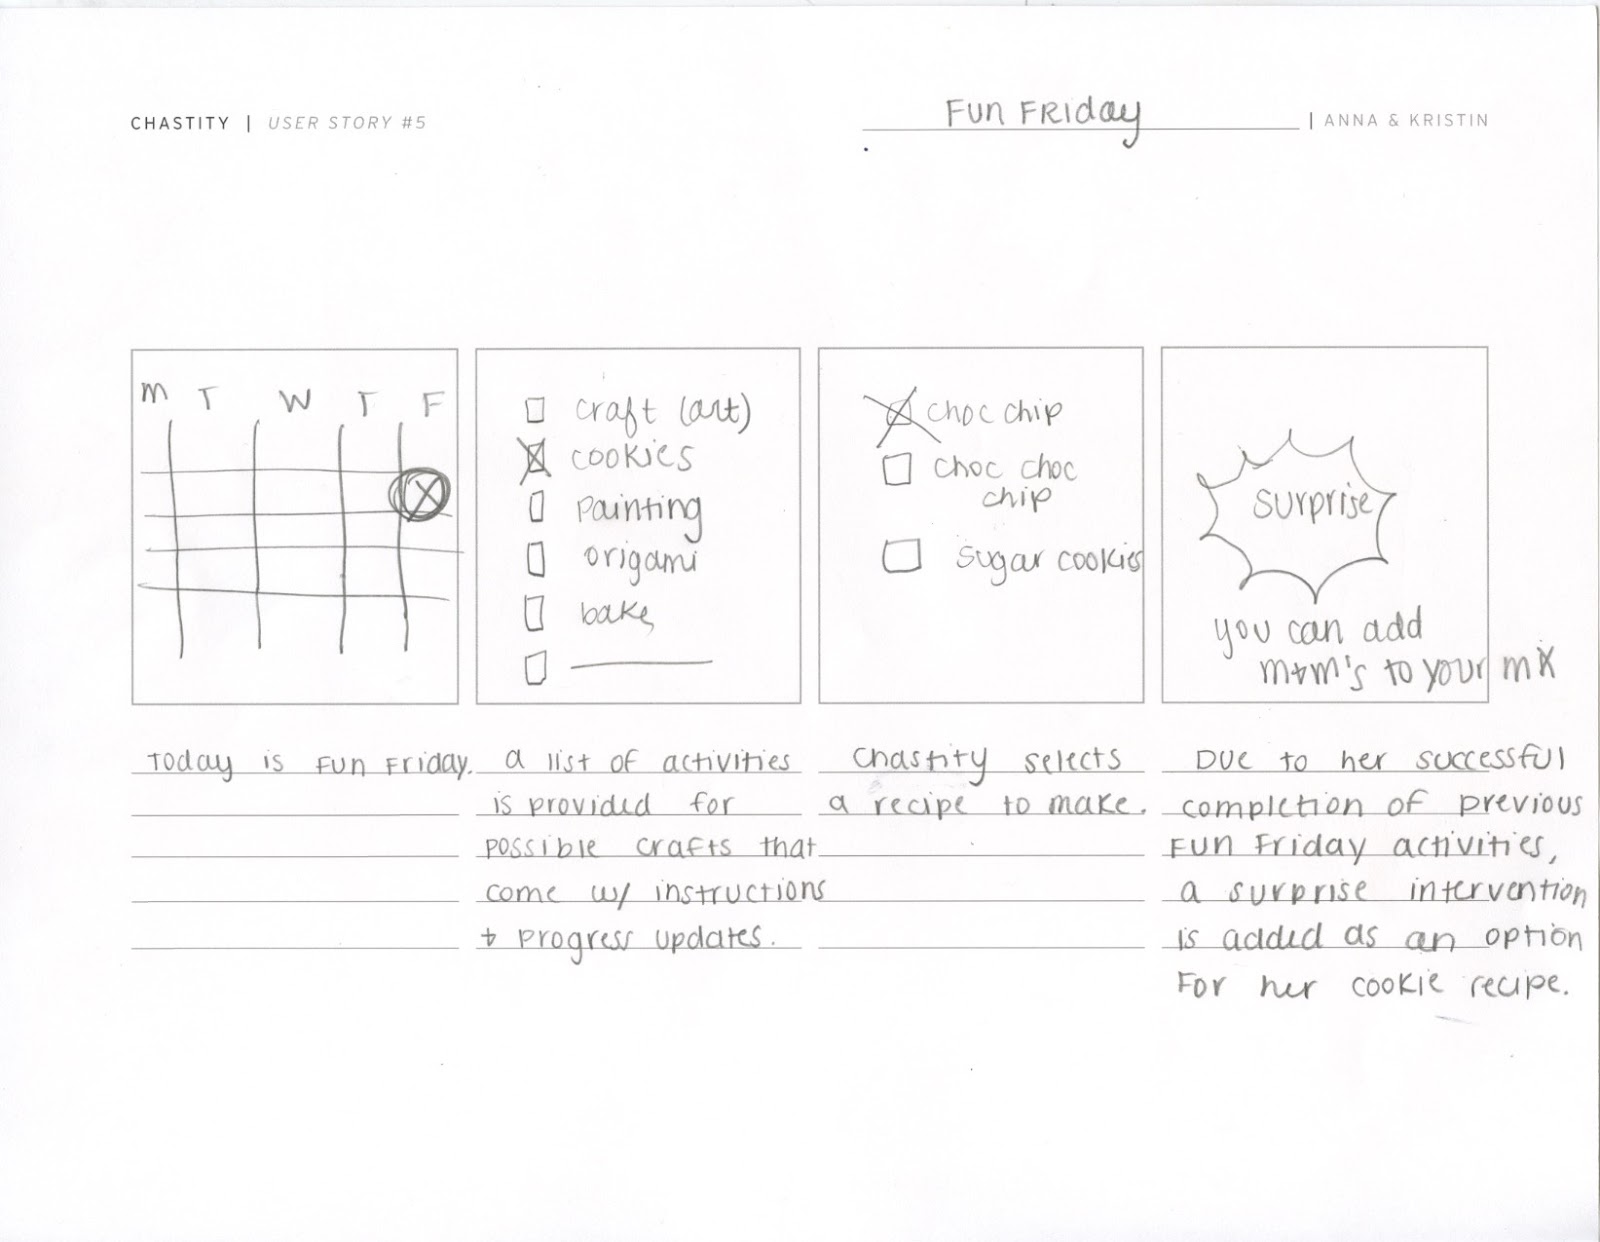 CHASTITY | USER STORY #5
Fun Friday | ANNA & KRISTIN
M T W T F
craft (art)
cookies
painting
origami
bake
choc chip
choc choc
chip
sugar cookies
surprise
you can add
m+m's to your mix
Today is Fun Friday.
a list of activities
is provided for
possible crafts that
come w/ instructions
+ progress updates.
Chastity selects
a recipe to make.
Due to her successful
completion of previous
Fun Friday activities,
a surprise intervention
is added as an option
For her cookie recipe.